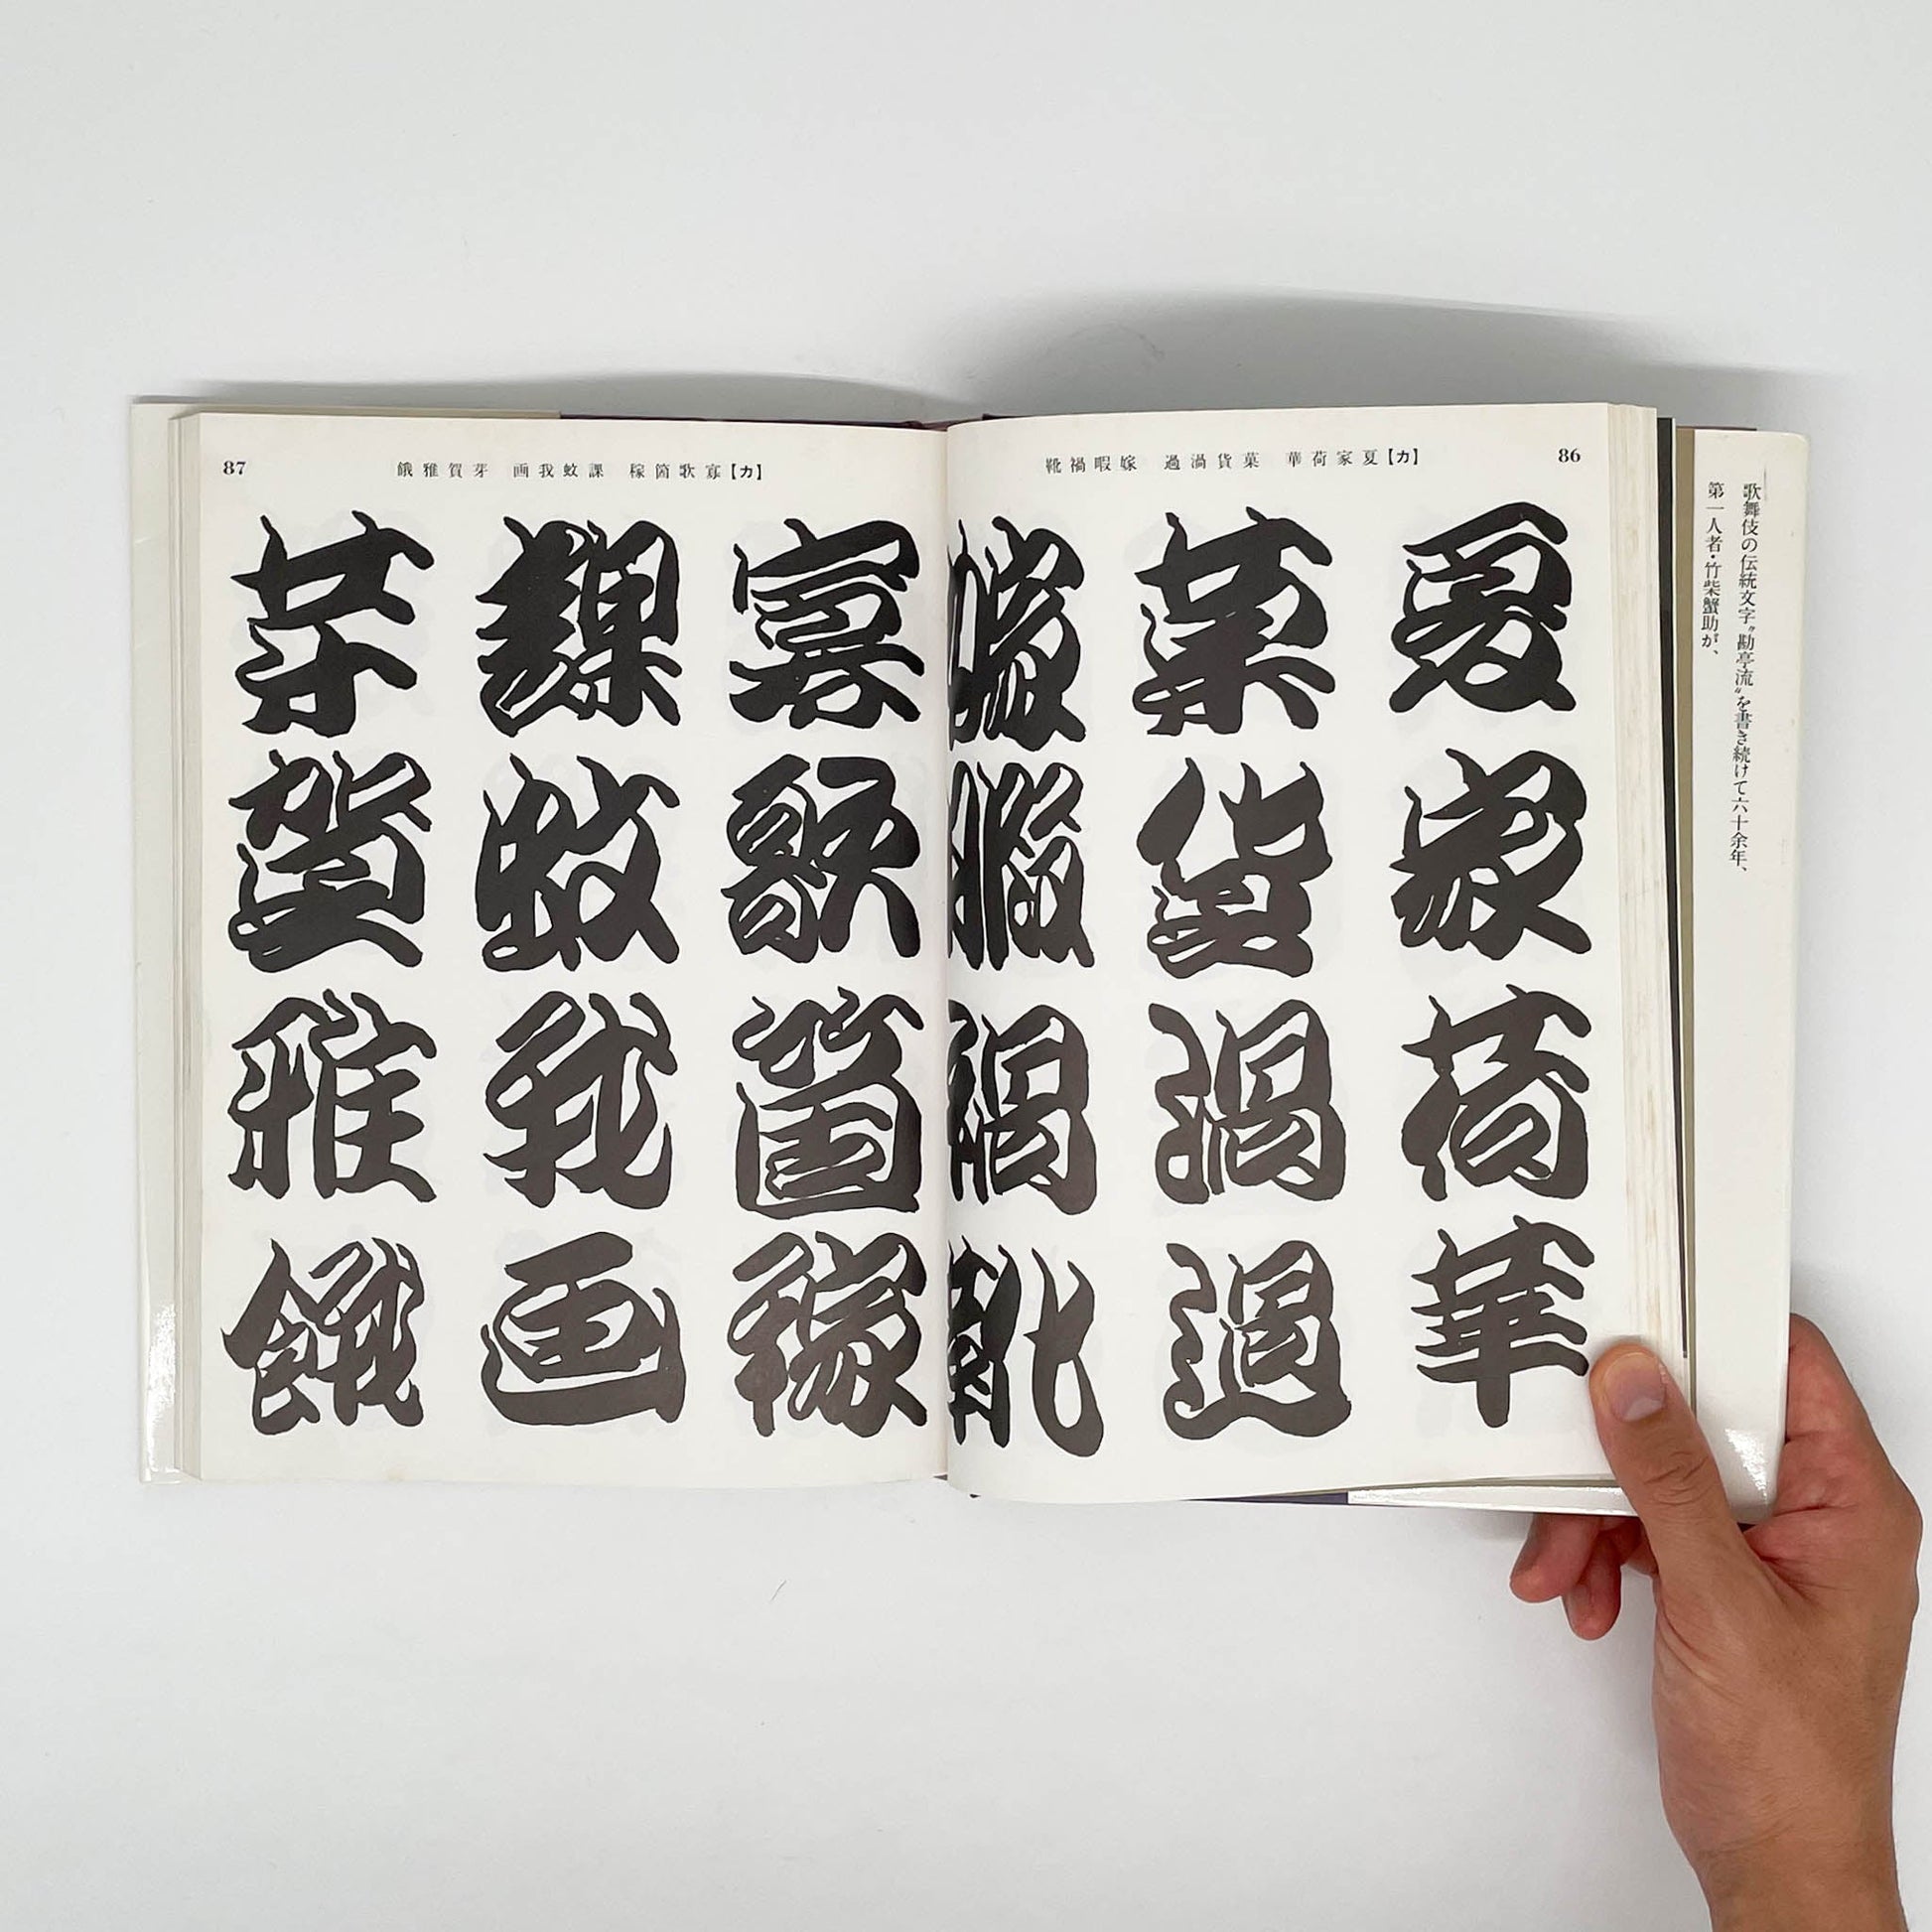 歌舞伎の伝統文字〝勘亭流〟を書き続けて六十余年、
第一人者・竹柴蟹助が、
86
靴禍暇嫁 過渦貨菓 華荷家夏【カ】
夏
家
荷
華
菓
貨
渦
過
嫁
暇
禍
靴
餓雅賀芽 画我蚊課 稼箇歌寡【カ】
87
寡
歌
箇
稼
課
蚊
我
画
芽
賀
雅
餓